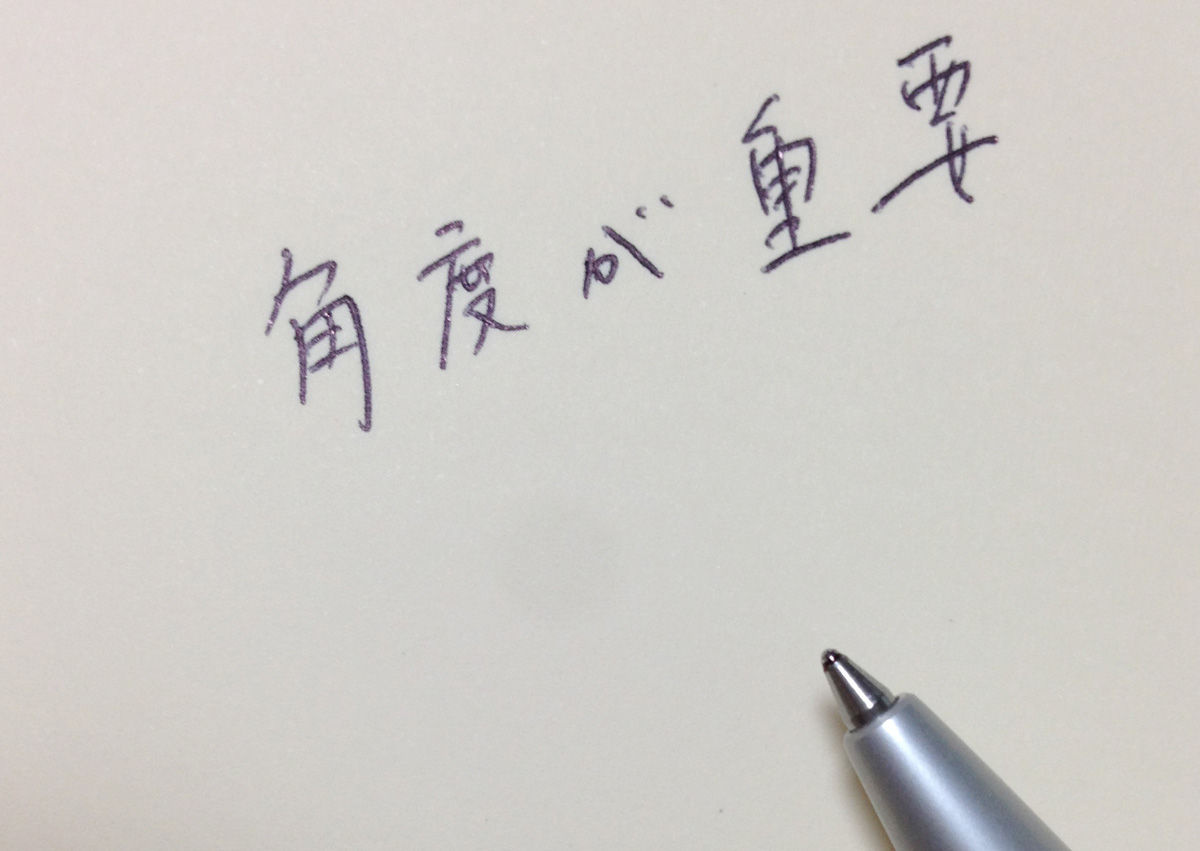 角度が重要